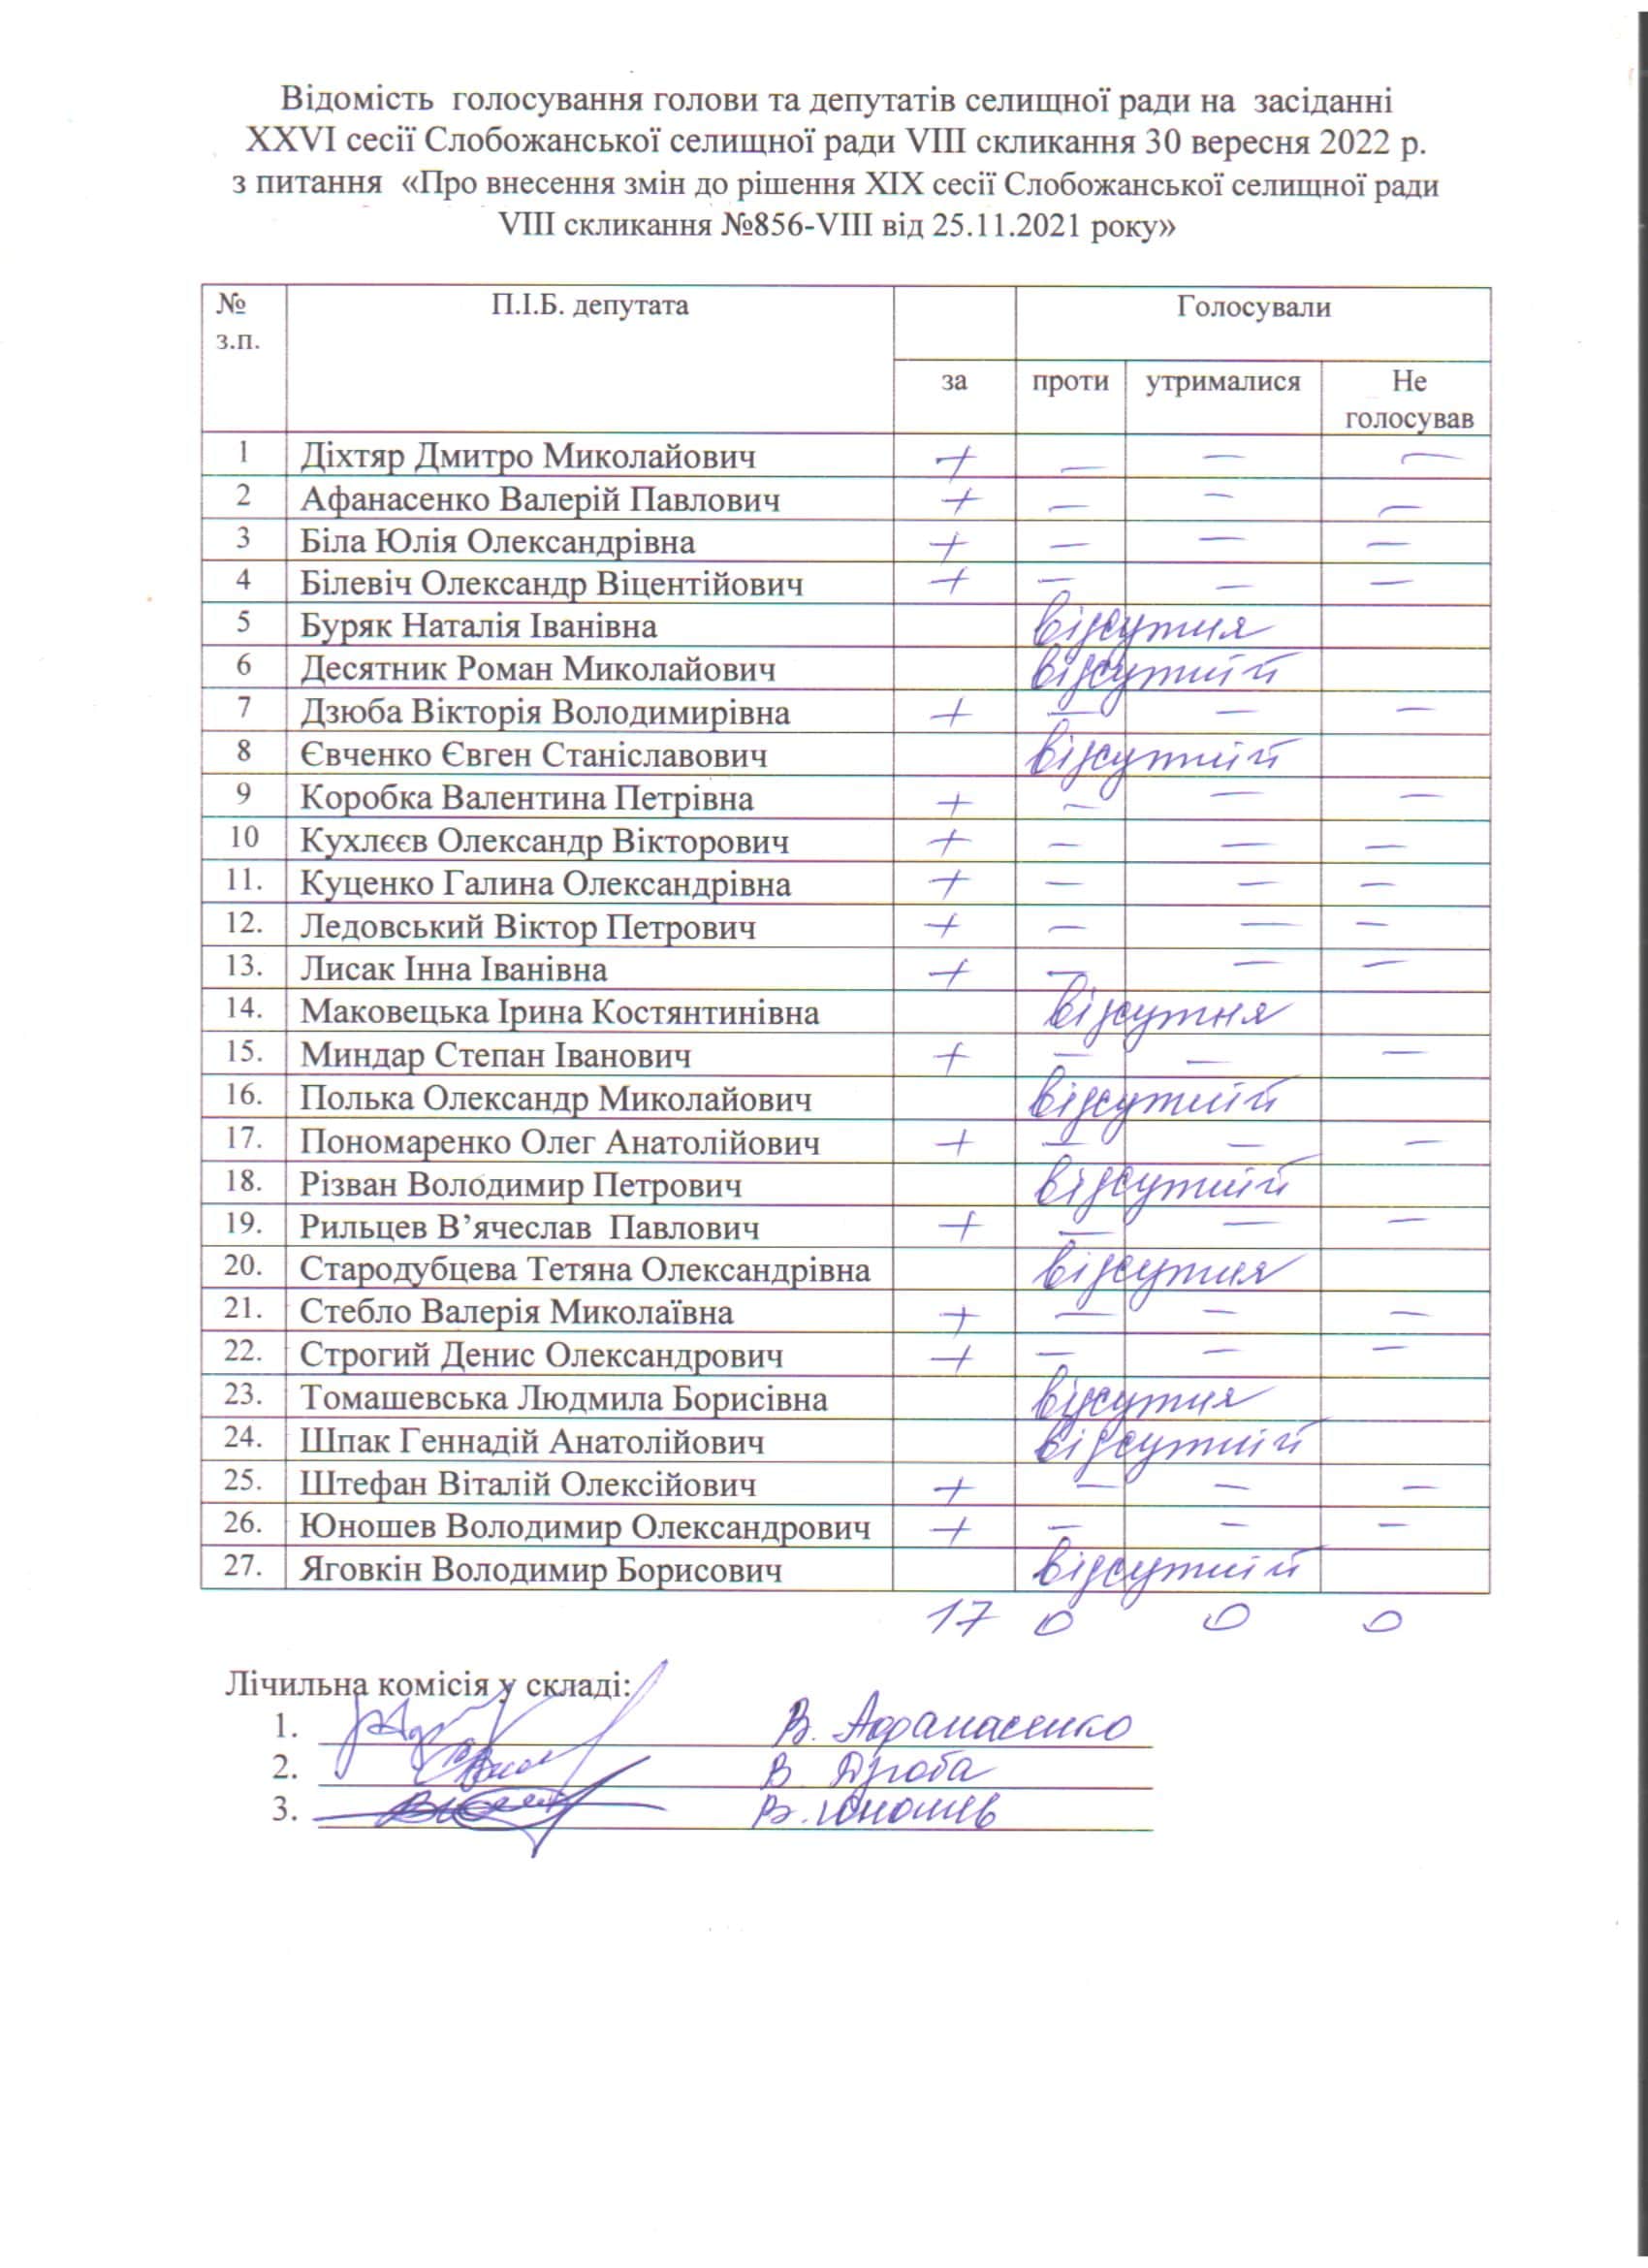 Відомість голосування голови та депутатів селищної ради на засіданні
XXVI сесії Слобожанської селищної ради VIII скликання 30 вересня 2022 р.
з питання «Про внесення змін до рішення XIX сесії Слобожанської селищної ради
VIII скликання №856-VIII від 25.11.2021 року»
№ з.п. П.І.Б. депутата Голосували
за проти утрималися Не голосував
1 Діхтяр Дмитро Миколайович + — — —
2 Афанасенко Валерій Павлович + — — —
3 Біла Юлія Олександрівна + — — —
4 Білевіч Олександр Віцентійович + — — —
5 Буряк Наталія Іванівна відсутня
6 Десятник Роман Миколайович відсутній
7 Дзюба Вікторія Володимирівна + — — —
8 Євченко Євген Станіславович відсутній
9 Коробка Валентина Петрівна + — — —
10 Кухлєєв Олександр Вікторович + — — —
11. Куценко Галина Олександрівна + — — —
12. Ледовський Віктор Петрович + — — —
13. Лисак Інна Іванівна + — — —
14. Маковецька Ірина Костянтинівна відсутня
15. Миндар Степан Іванович + — — —
16. Полька Олександр Миколайович відсутній
17. Пономаренко Олег Анатолійович + — — —
18. Різван Володимир Петрович відсутній
19. Рильцев В’ячеслав Павлович + — — —
20. Стародубцева Тетяна Олександрівна відсутня
21. Стебло Валерія Миколаївна + — — —
22. Строгий Денис Олександрович + — — —
23. Томашевська Людмила Борисівна відсутня
24. Шпак Геннадій Анатолійович відсутній
25. Штефан Віталій Олексійович + — — —
26. Юношев Володимир Олександрович + — — —
27. Яговкін Володимир Борисович відсутній
17 0 0 0
Лічильна комісія у складі:
1. В. Афанасенко
2. В. Дзюба
3. В. Юношев